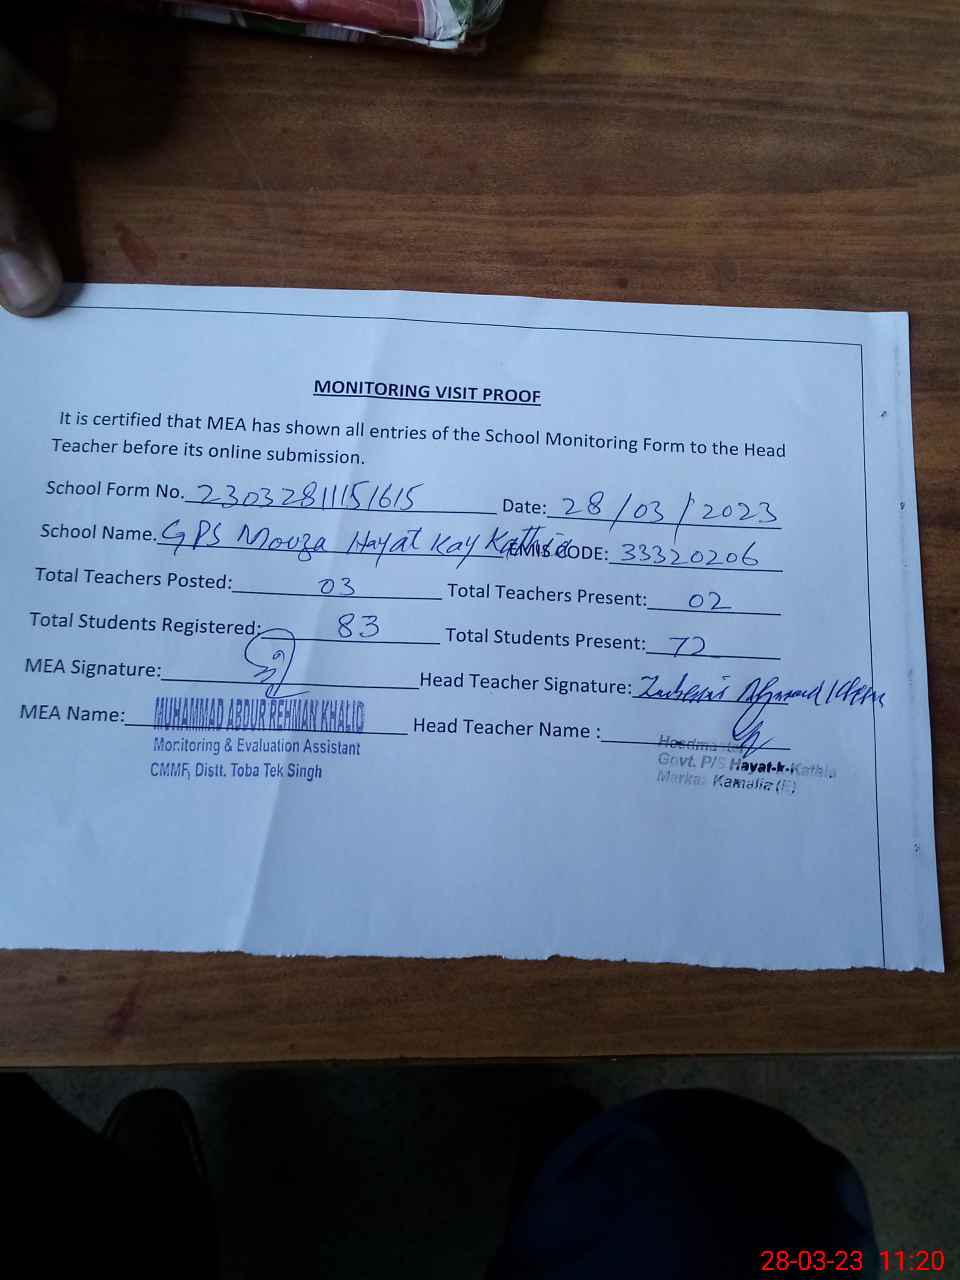 MONITORING VISIT PROOF
It is certified that MEA has shown all entries of the School Monitoring Form to the Head
Teacher before its online submission.
School Form No. 23032811151615 Date: 28/03/2023
School Name. GPS Mouza Hayat Kay Kathia EMIS CODE: 33320206
Total Teachers Posted: 03 Total Teachers Present: 02
Total Students Registered: 83 Total Students Present: 72
MEA Signature: Head Teacher Signature:
MEA Name: MUHAMMAD ABDUR REHMAN KHALID Head Teacher Name :
Monitoring & Evaluation Assistant
CMMF, Distt. Toba Tek Singh
Headmaster
Govt. P/S Hayat-k-Kathia
Markaz Kamalia (E)
28-03-23 11:20